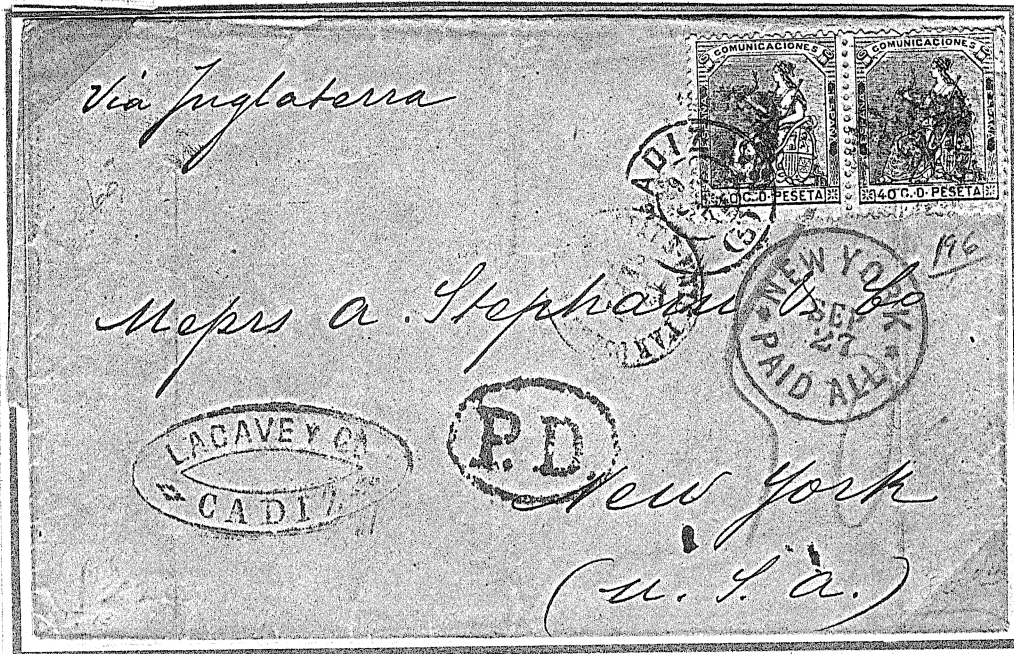 Via Inglaterra
COMUNICACIONES
40 C. D. PESETA
COMUNICACIONES
40 C. D. PESETA
196
NEW YORK
SEP
27
PAID ALL
Messrs A. Stephani & Co
LACAVE Y CA
CADIZ
P.D.
New York
(U. S. A.)